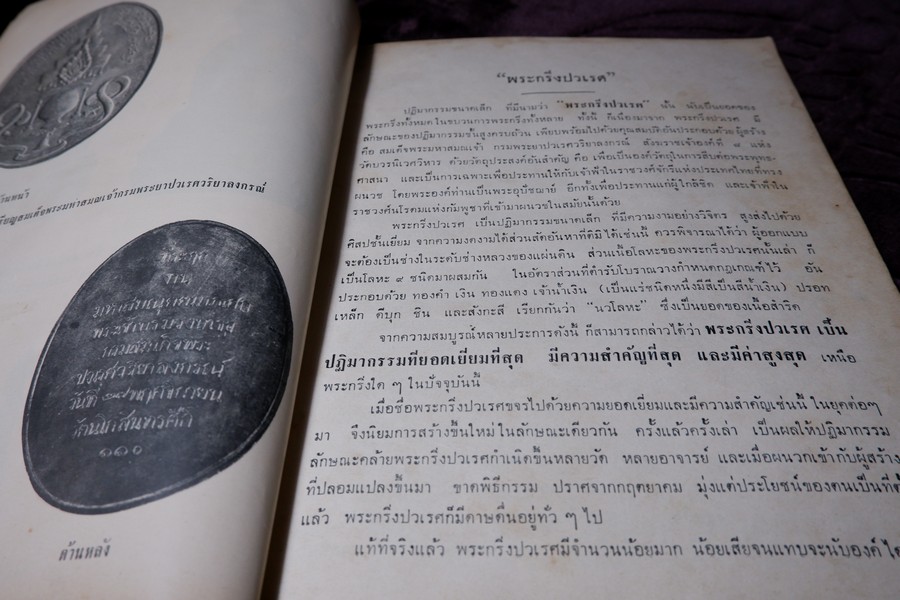 ด้านหน้า
เหรียญสมเด็จพระมหาสมณเจ้ากรมพระยาปวเรศวริยาลงกรณ์
วันที่
๑๑๑
ด้านหลัง
“พระกริ่งปวเรศ”
ปฏิมากรรมขนาดเล็ก ที่มีนามว่า “พระกริ่งปวเรศ” นั้น นับเป็นยอดของ
พระกริ่งทั้งหมดในขบวนการพระกริ่งทั้งหลาย ทั้งนี้ ก็เนื่องมาจาก พระกริ่งปวเรศ มี
ลักษณะของปฏิมากรรมชั้นสูงครบถ้วน เพียบพร้อมไปด้วยคุณสมบัติอันประกอบด้วย ผู้สร้าง
คือ สมเด็จพระมหาสมณเจ้า กรมพระยาปวเรศวริยาลงกรณ์ สังฆราชเจ้าองค์ที่ ๘ แห่ง
วัดบวรนิเวศวิหาร ด้วยวัตถุประสงค์อันสำคัญ คือ เพื่อเป็นองค์วัตถุในการสืบต่อพระพุทธ-
ศาสนา และเป็นการเฉพาะเพื่อประทานให้กับเจ้าฟ้าในราชวงศ์จักรีแห่งประเทศไทยที่ทรง
ผนวช โดยพระองค์ท่านเป็นพระอุปัชฌาย์ อีกทั้งเพื่อประทานแก่ผู้ใกล้ชิด และเจ้าฟ้าใน
ราชวงศ์นโรดมแห่งกัมพูชาที่เข้ามาผนวชในสมัยนั้นด้วย
พระกริ่งปวเรศ เป็นปฏิมากรรมขนาดเล็ก ที่มีความงามอย่างวิจิตร สูงส่งไปด้วย
ศิลปชั้นเยี่ยม จากความงดงามได้ส่วนสัดอันหาที่ติมิได้เช่นนี้ ควรพิจารณาได้ว่า ผู้ออกแบบ
จะต้องเป็นช่างในระดับช่างหลวงของแผ่นดิน ส่วนเนื้อโลหะของพระกริ่งปวเรศนั้นเล่า ก็
เป็นโลหะ ๙ ชนิดมาผสมกัน ในอัตราส่วนที่ตำรับโบราณวางกำหนดกฎเกณฑ์ไว้ อัน
ประกอบด้วย ทองคำ เงิน ทองแดง เจ้าน้ำเงิน (เป็นแร่ชนิดหนึ่งมีสีเป็นสีน้ำเงิน) ปรอท
เหล็ก ดีบุก ชิน และสังกะสี เรียกกันว่า “นวโลหะ” ซึ่งเป็นยอดของเนื้อสำริด
จากความสมบูรณ์หลายประการดังนี้ ก็สามารถกล่าวได้ว่า พระกริ่งปวเรศ เป็น
ปฏิมากรรมที่ยอดเยี่ยมที่สุด มีความสำคัญที่สุด และมีค่าสูงสุด เหนือ
พระกริ่งใด ๆ ในปัจจุบันนี้
เมื่อชื่อพระกริ่งปวเรศขจรไปด้วยความยอดเยี่ยมและมีความสำคัญเช่นนี้ ในยุคต่อๆ
มา จึงนิยมการสร้างขึ้นใหม่ในลักษณะเดียวกัน ครั้งแล้วครั้งเล่า เป็นผลให้ปฏิมากรรม
ลักษณะคล้ายพระกริ่งปวเรศกำเนิดขึ้นหลายวัด หลายอาจารย์ และเมื่อผนวกเข้ากับผู้สร้าง
ที่ปลอมแปลงขึ้นมา ขาดพิธีกรรม ปราศจากกฤตยาคม มุ่งแต่ประโยชน์ของตนเป็นที่ตั้
แล้ว พระกริ่งปวเรศก็มีดาษดื่นอยู่ทั่ว ๆ ไป
แท้ที่จริงแล้ว พระกริ่งปวเรศมีจำนวนน้อยมาก น้อยเสียจนแทบจะนับองค์ได้